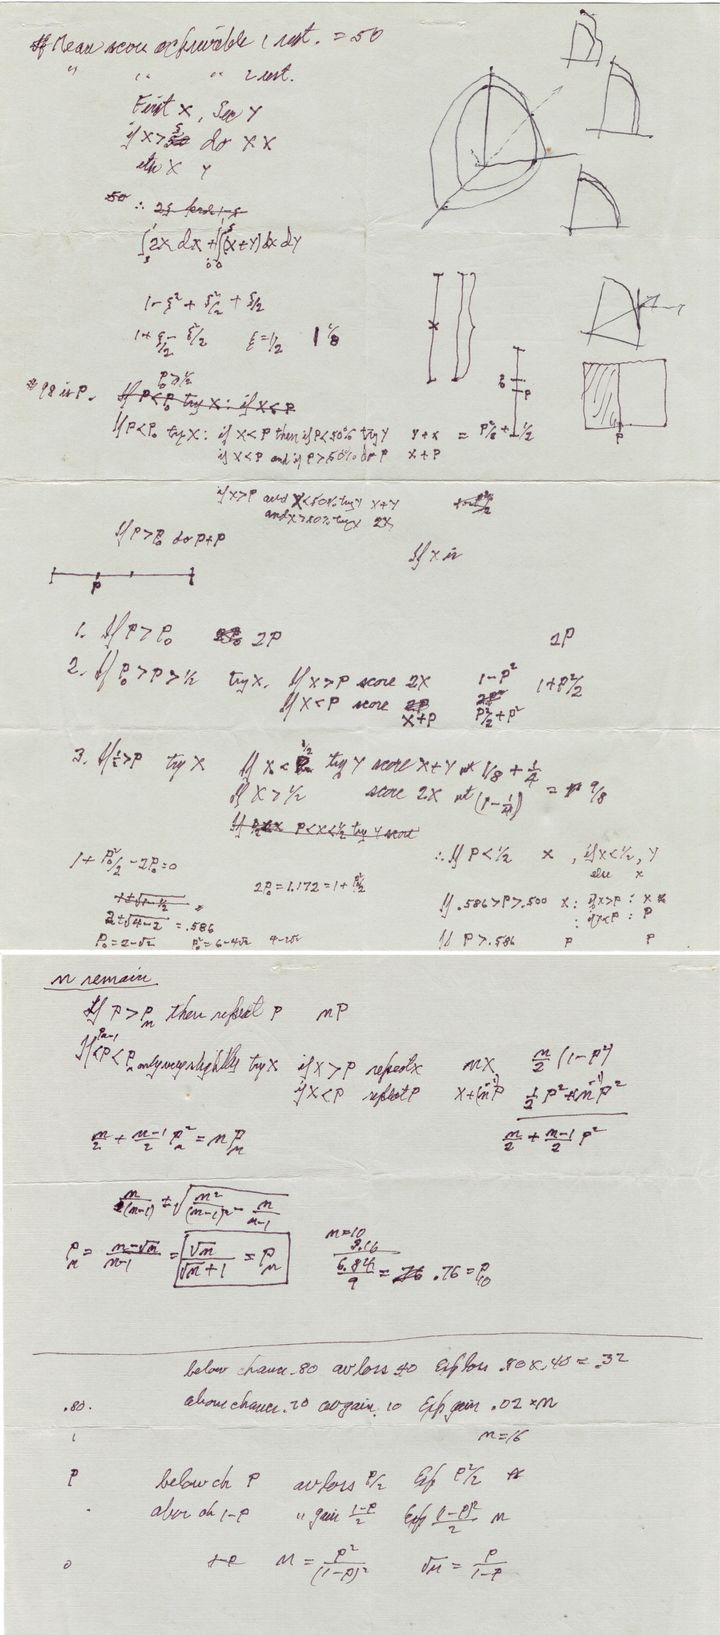 Mean score achievable 1 rest. = 50
" " " 2 rest.
First X, Sec Y
if X > ξ do X X
X Y
50 ∴
∫ 2x dx + ∫∫ (x+y) dx dy
1 - ξ² + ξ²/2 + ξ/2
1 + ξ/2 - ξ²/2 ξ = 1/2 1 1/8
P₀ > 1/2
#98 is P. If P<P₀ try X: if X<P
If P<P₀ try X: if X<P then if P<50% try Y Y+X = P²/2 + 1/2
if X<P and if P>50% do P X+P
if X>P and X<50% try Y X+Y
and X>50% try X 2X
If P>P₀ do P+P
If X is
P
1. If P>P₀ 2P 2P
2. If P₀>P>1/2 try X. If X>P score 2X 1-P² 1+P²/2
If X<P score 2P
X+P P²/2+P²
3. If 1/2>P try X If X<1/2 try Y score X+Y wt 1/8 + 1/4
If X>1/2 score 2X wt (1-1/4) = 9/8
P<X<1/2 try Y score
1 + P₀²/2 - 2P₀ = 0 ∴ If P<1/2 X, if X<1/2, Y
else X
2P₀ = 1.172 = 1 + P²/2
2±√(4-2) = .586 If .586>P>.500 X: if X>P : X
if X<P : P
P₀ = 2-√2 P₀² = 6-4√2 4-2√2 If P>.586 P P
n remain
If P>Pₙ then repeat P nP
If Pₙ₋₁<P<Pₙ only very slightly try X if X>P repeat X nX n/2 (1-P²)
if X<P repeat P X+(n-1)P 1/2 P²+(n-1)P²
n/2 + n-1/2 Pₙ² = nPₙ n/2 + n-1/2 P²
n/(n-1) ± √(n²/(n-1)² - n/n-1)
Pₙ = n-√n/n-1 = √n/√n+1 = Pₙ
n=10
3.16
6.84/9 = .76 = P₁₀
below chance .80 av loss .40 Exp loss .80×.40 = .32
.80. above chance .20 av gain .10 Exp gain .02×n
1 n=16
P below ch P av loss P/2 Exp P²/2
above ch 1-P " gain 1-P/2 Exp (1-P)²/2 n
0 n = P²/(1-P)² √n = P/1-P